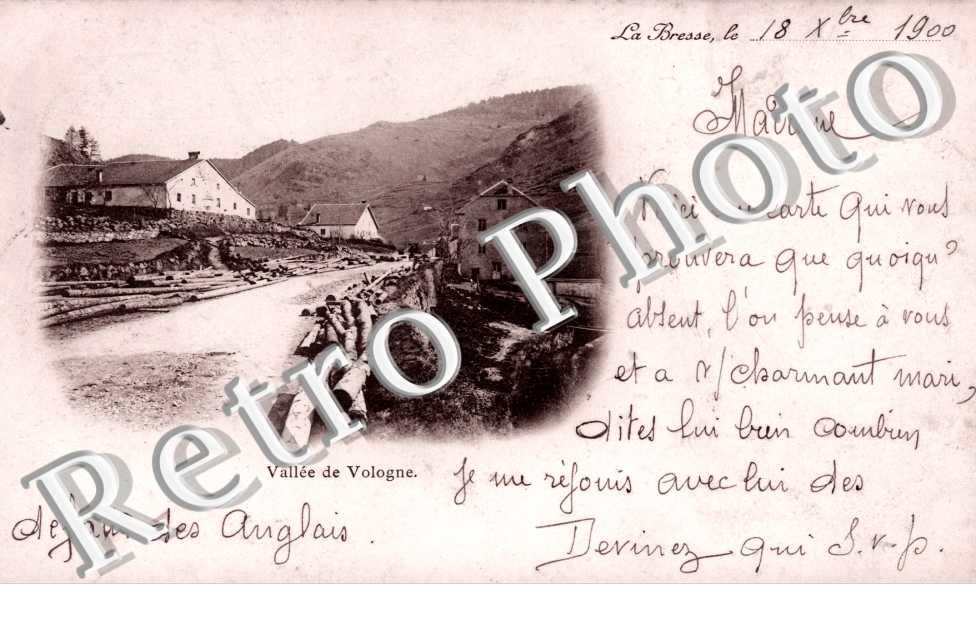 La Bresse, le 18 Xbre 1900
Madame
Voici une carte qui vous
prouvera que quoiqu'
absent, l'on pense à vous
et a v/ charmant mari,
dites lui bien combien
Je me réjouis avec lui des
des Anglais.
Devinez qui S.v.p.
Vallée de Vologne.
Retro Photo